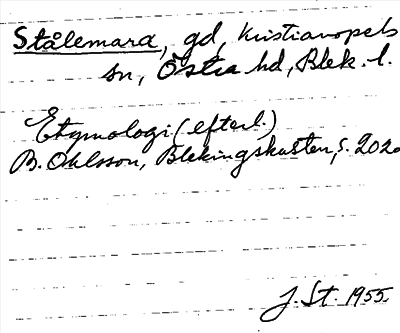 Stålemara, gd, Kristianopels
sn, Östra hd, Blek. l.
Etymologi (efterl.)
B. Ohlsson, Blekingskusten, s. 202
J. St. 1955.